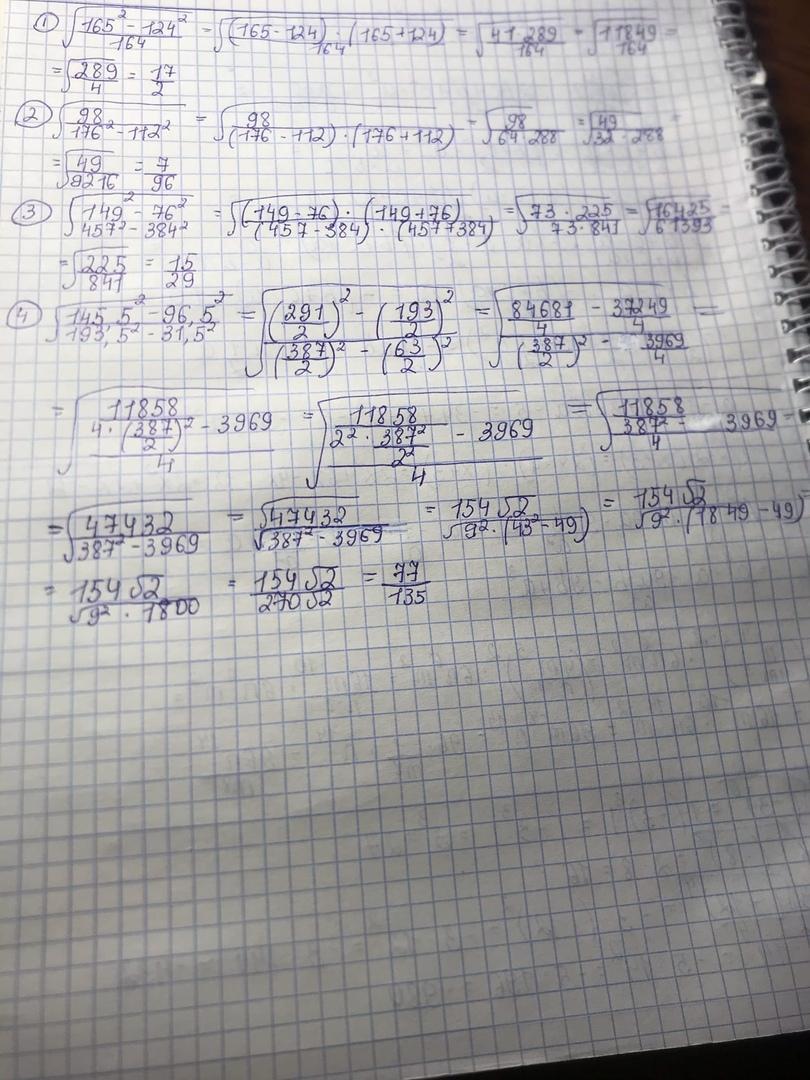 ① √((165² - 124²)/164) = √(((165 - 124) · (165 + 124))/164) = √((41 · 289)/164) = √(11849/164) =
= √(289/4) = 17/2
② √(98/(176² - 112²)) = √(98/((176 - 112) · (176 + 112))) = √(98/(64 · 288)) = √(49/(32 · 288)) =
= √(49/9216) = 7/96
③ √((149² - 76²)/(457² - 384²)) = √(((149 - 76) · (149 + 76))/((457 - 384) · (457 + 384))) = √((73 · 225)/(73 · 841)) = √(16425/61393) =
= √(225/841) = 15/29
④ √((145,5² - 96,5²)/(193,5² - 31,5²)) = √(((291/2)² - (193/2)²)/((387/2)² - (63/2)²)) = √((84681/4 - 37249/4)/((387/2)² - 3969/4)) =
= √(11858/((4 · (387/2)² - 3969)/4)) = √(11858/((2² · 387²/2² - 3969)/4)) = √(11858/((387² - 3969)/4)) =
= √(47432/(387² - 3969)) = √47432/√(387² - 3969) = 154√2/√(9² · (43² - 49)) = 154√2/√(9² · (1849 - 49)) =
= 154√2/√(9² · 1800) = 154√2/270√2 = 77/135